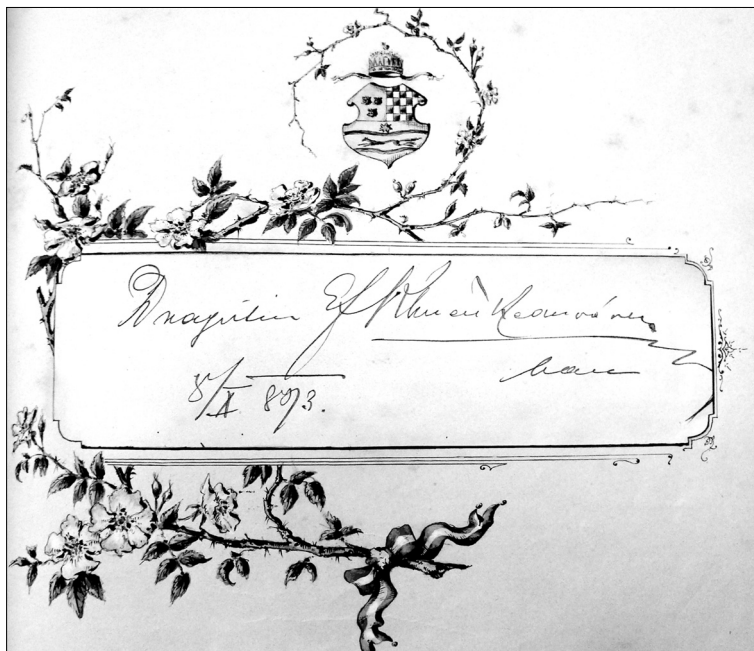 Dragutin Gf Khuen Hedervary
ban
8/X 893.